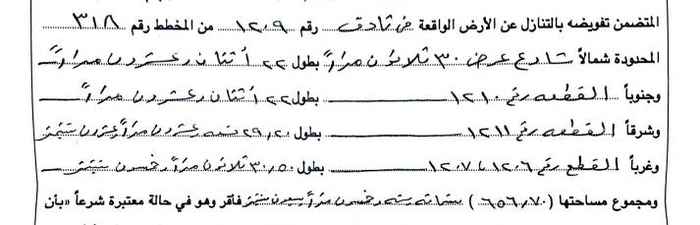 المتضمن تفويضه بالتنازل عن الأرض الواقعة في ثادق رقم ١٢٠٩ من المخطط رقم ٣١٨
المحدودة شمالاً شارع عرض ٣٠ ثلاثون متراً بطول ٢٢ أثنان وعشرون متراً
وجنوباً القطعه رقم ١٢١٠ بطول ٢٢ أثنان وعشرون متراً
وشرقاً القطعه رقم ١٢١١ بطول ٢٩,٢٠ تسعه وعشرون متراً وعشرون سنتمتر
وغرباً القطع رقم ١٢٠٦ ١٢٠٧ بطول ٣٠,٥٠ ثلاثون متراً وخمسون سنتمتر
ومجموع مساحتها ( ٦٥٦,٧٠ ) ستمائه سته وخمسون متراً سبعون سنتمتر فأقر وهو في حالة معتبرة شرعاً «بأن